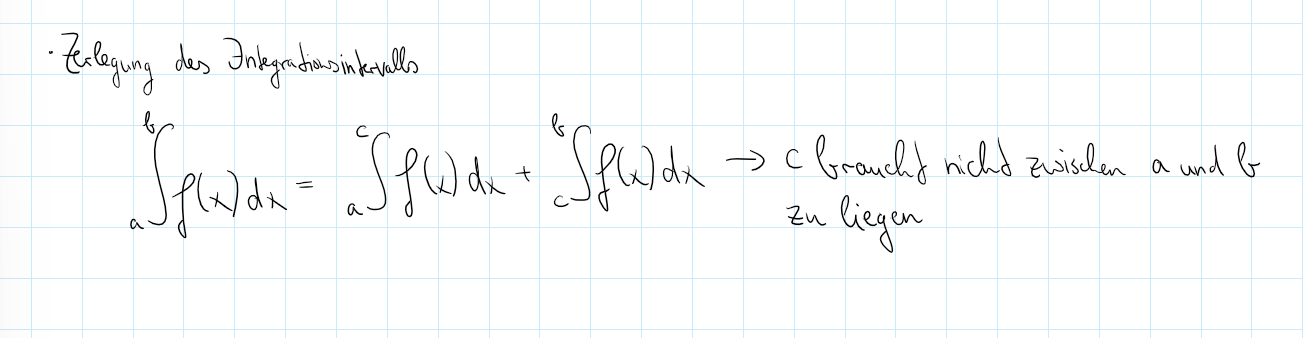 · Zerlegung des Integrationsintervalls
∫_a^b f(x) dx = ∫_a^c f(x) dx + ∫_c^b f(x) dx → c braucht nicht zwischen a und b
zu liegen